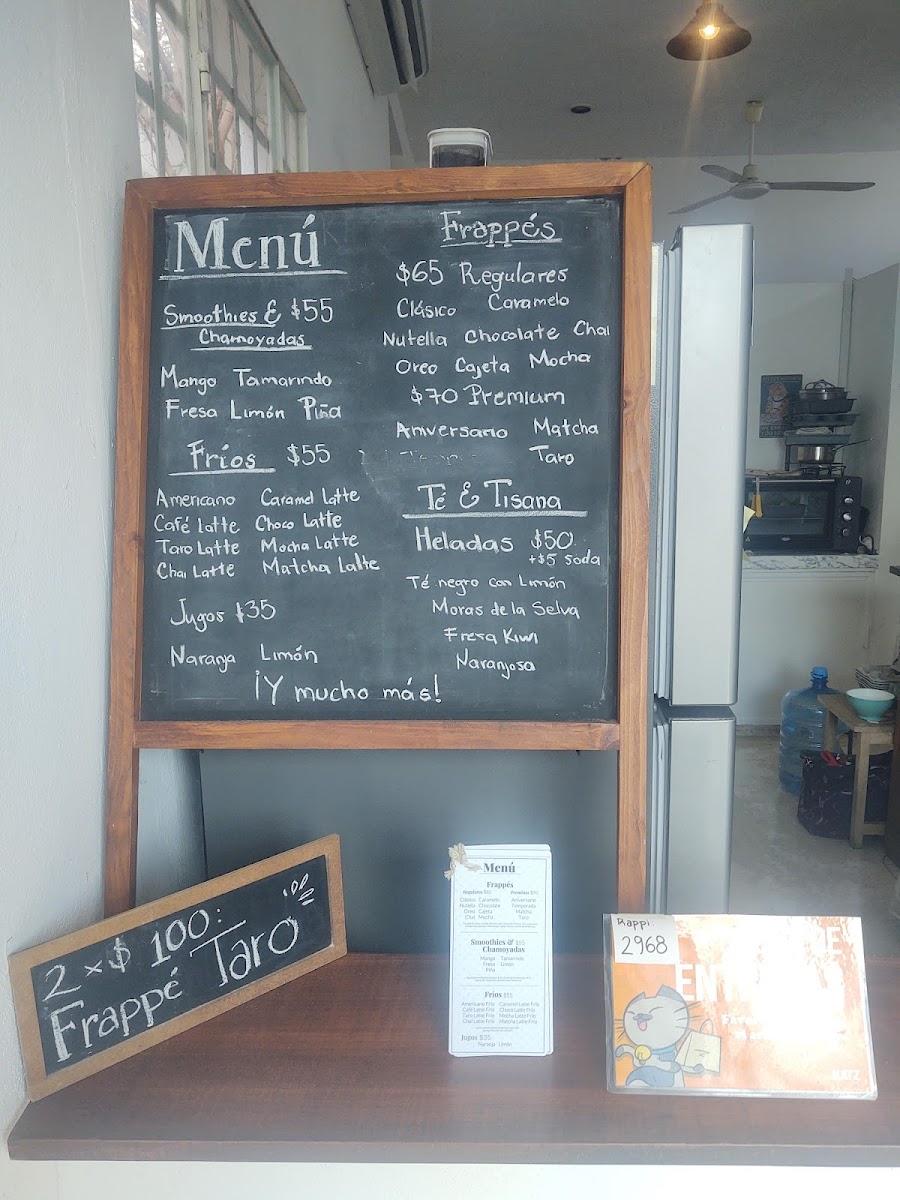 Menú
Smoothies & $55
Chamoyadas
Mango Tamarindo
Fresa Limón Piña
Fríos $55
Americano Caramel Latte
Café Latte Choco Latte
Taro Latte Mocha Latte
Chai Latte Matcha Latte
Jugos $35
Naranja Limón
¡Y mucho más!
Frappés
$65 Regulares
Clásico Caramelo
Nutella Chocolate Chai
Oreo Cajeta Mocha
$70 Premium
Aniversario Matcha
Taro
Té & Tisana
Heladas $50
+$5 soda
Té negro con Limón
Moras de la Selva
Fresa Kiwi
Naranjosa
2 x $100:
Frappé Taro
Menú
Frappés
Regulares Premium
Clásico Caramelo Aniversario
Nutella Chocolate Temporada
Oreo Cajeta Matcha
Chai Mocha Taro
Smoothies & $55
Chamoyadas
Mango Tamarindo
Fresa Limón
Piña
Fríos $55
Americano Frío Caramel Latte Frío
Café Latte Frío Choco Latte Frío
Taro Latte Frío Mocha Latte Frío
Chai Latte Frío Matcha Latte Frío
Jugos $35
Naranja Limón
Rappi:
2968